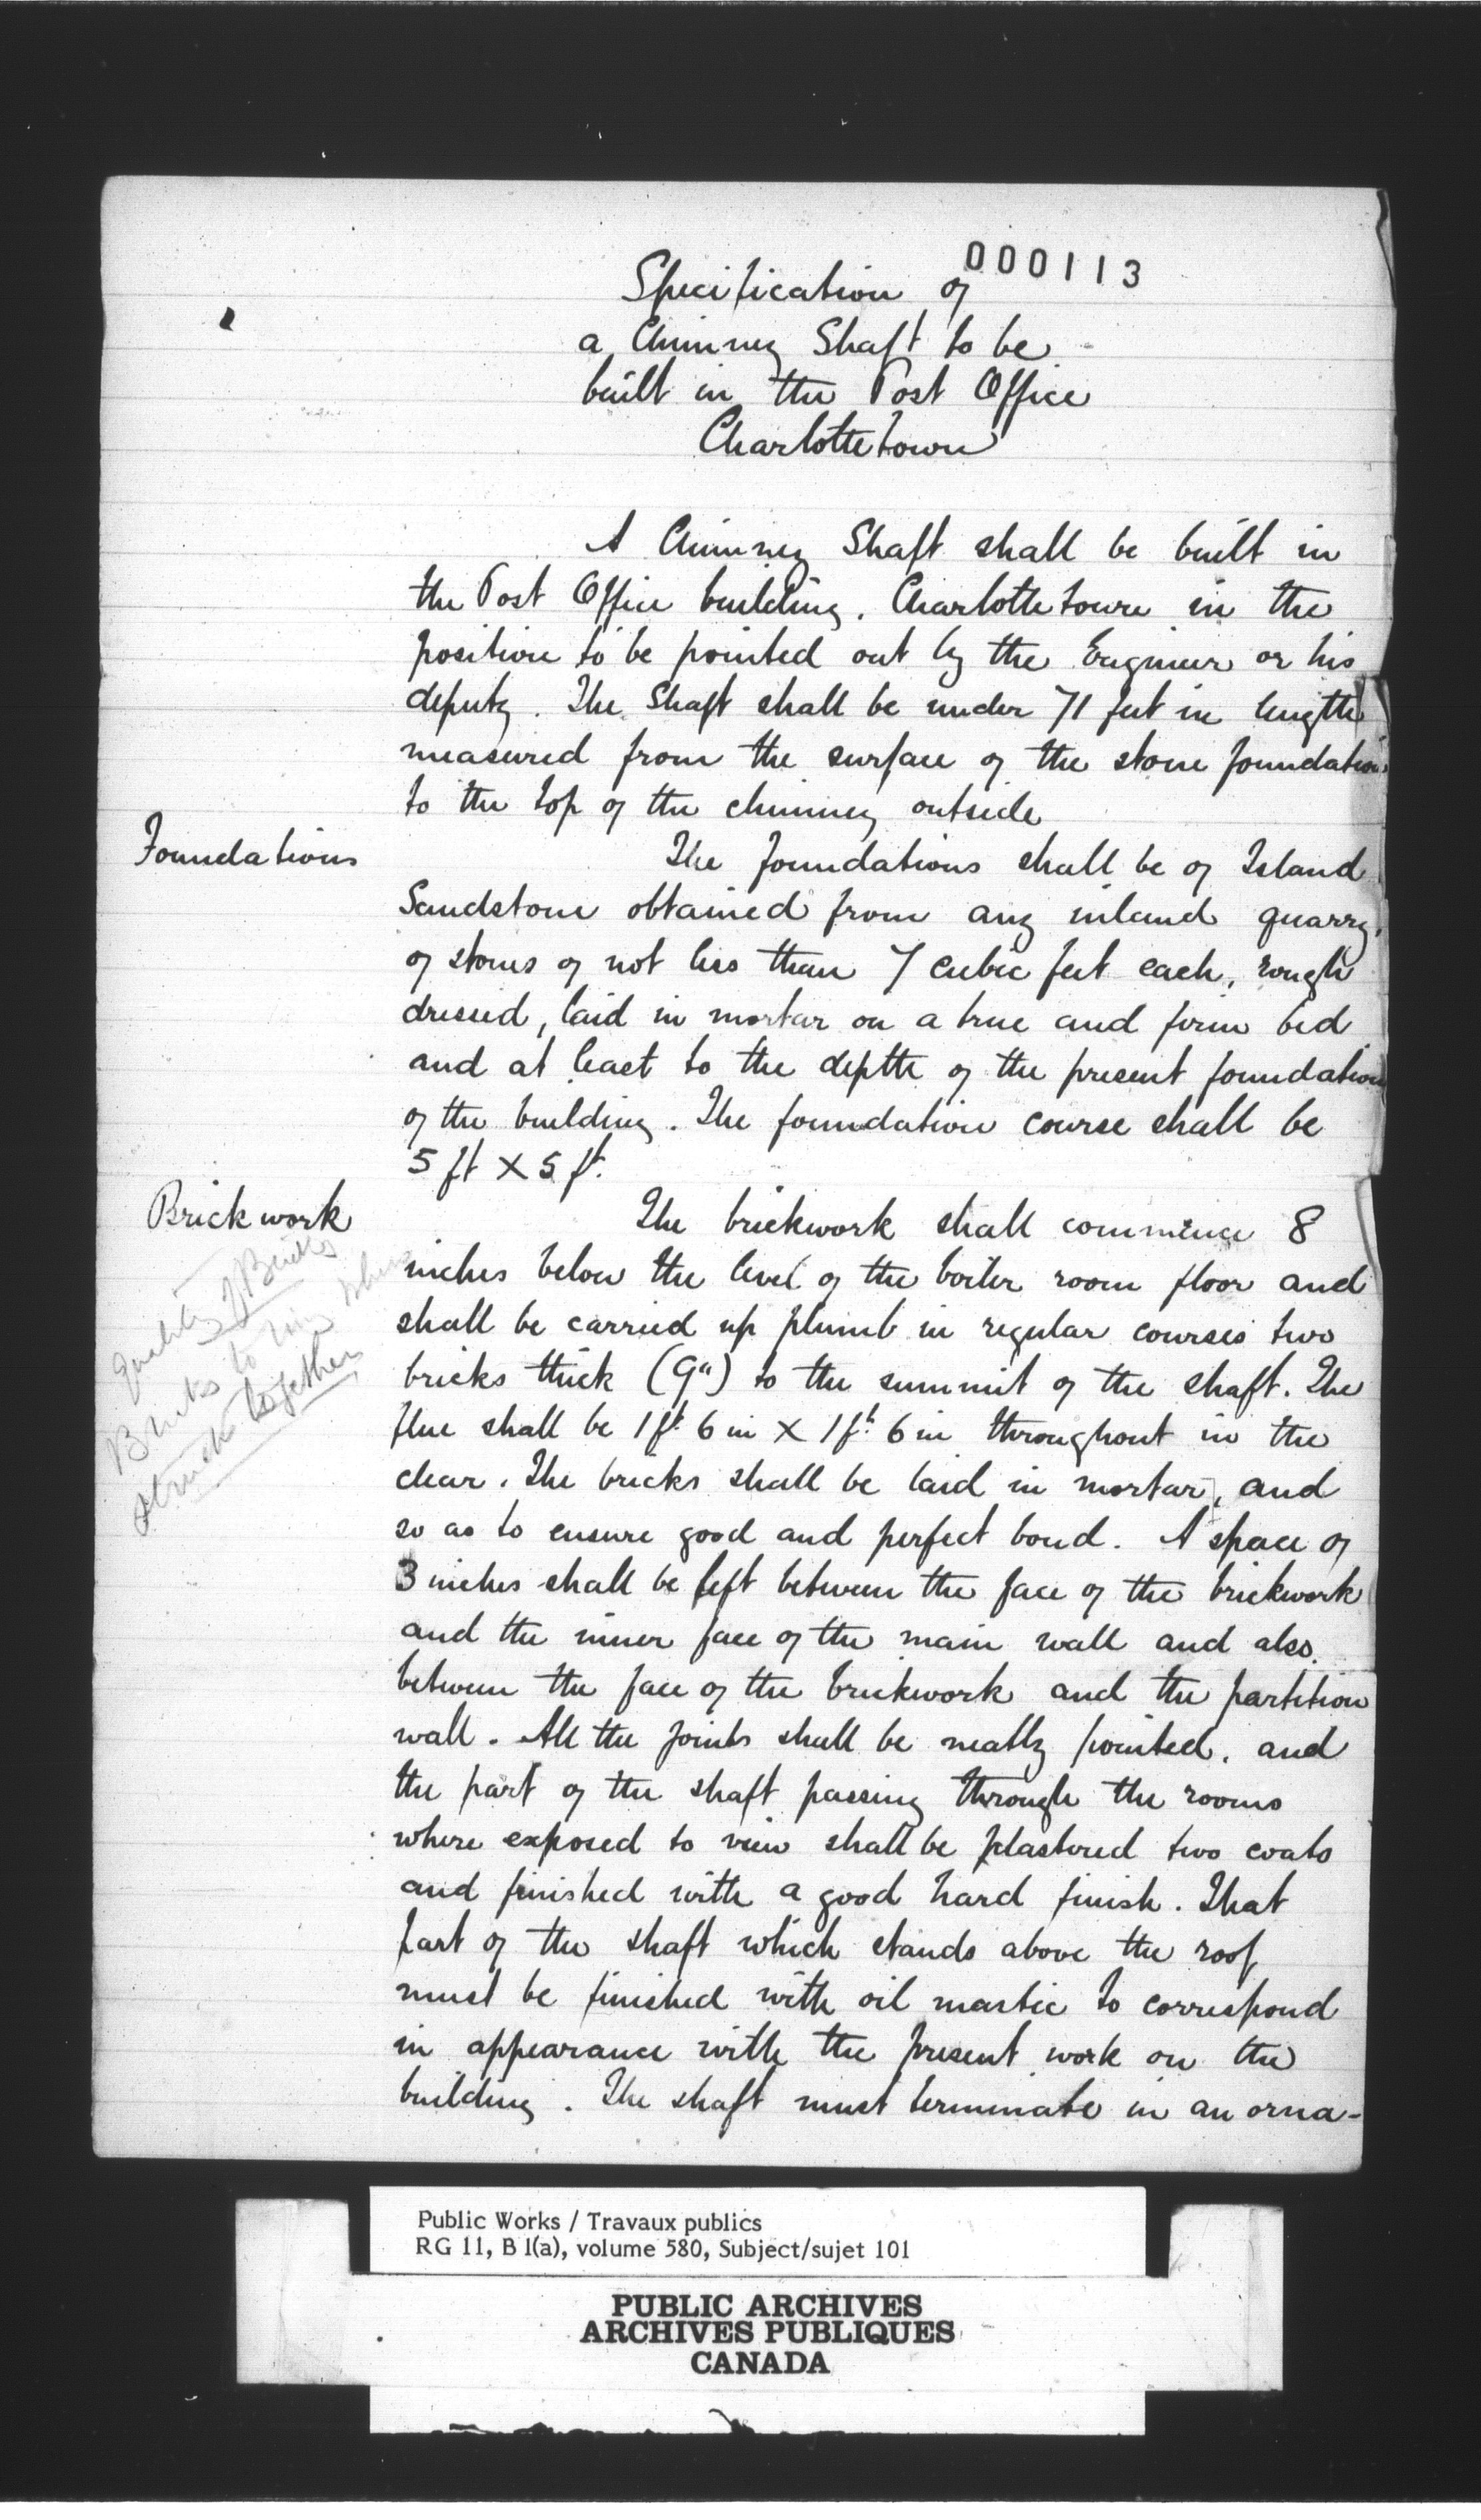 000113
Specification of
a Chimney Shaft to be
built in the Post Office
Charlottetown
A Chimney Shaft shall be built in
the Post Office building. Charlottetown in the
position to be pointed out by the Engineer or his
deputy. The Shaft shall be under 71 feet in length
measured from the surface of the stone foundation
to the top of the chimney outside
Foundations
The foundations shall be of Island
Sandstone obtained from any inland quarry,
of stones of not less than 7 cubic feet each, rough
dressed, laid in mortar on a true and firm bed
and at least to the depth of the present foundation
of the building. The foundation course shall be
5 ft X 5 ft.
Brickwork
The brickwork shall commence 8
inches below the level of the boiler room floor and
shall be carried up plumb in regular courses two
bricks thick (9") to the summit of the shaft. The
flue shall be 1 ft 6 in X 1 ft 6 in throughout in the
clear. The bricks shall be laid in mortar, and
so as to ensure good and perfect bond. A space of
3 inches shall be left between the face of the brickwork
and the inner face of the main wall and also
between the face of the brickwork and the partition
wall. All the joints shall be neatly pointed, and
the part of the shaft passing through the rooms
where exposed to view shall be plastered two coats
and finished with a good hard finish. That
part of the shaft which stands above the roof
must be finished with oil mastic to correspond
in appearance with the present work on the
building. The shaft must terminate in an orna-
quality of Bricks
Bricks to ring when
struck together
Public Works / Travaux publics
RG 11, B 1(a), volume 580, Subject/sujet 101
PUBLIC ARCHIVES
ARCHIVES PUBLIQUES
CANADA